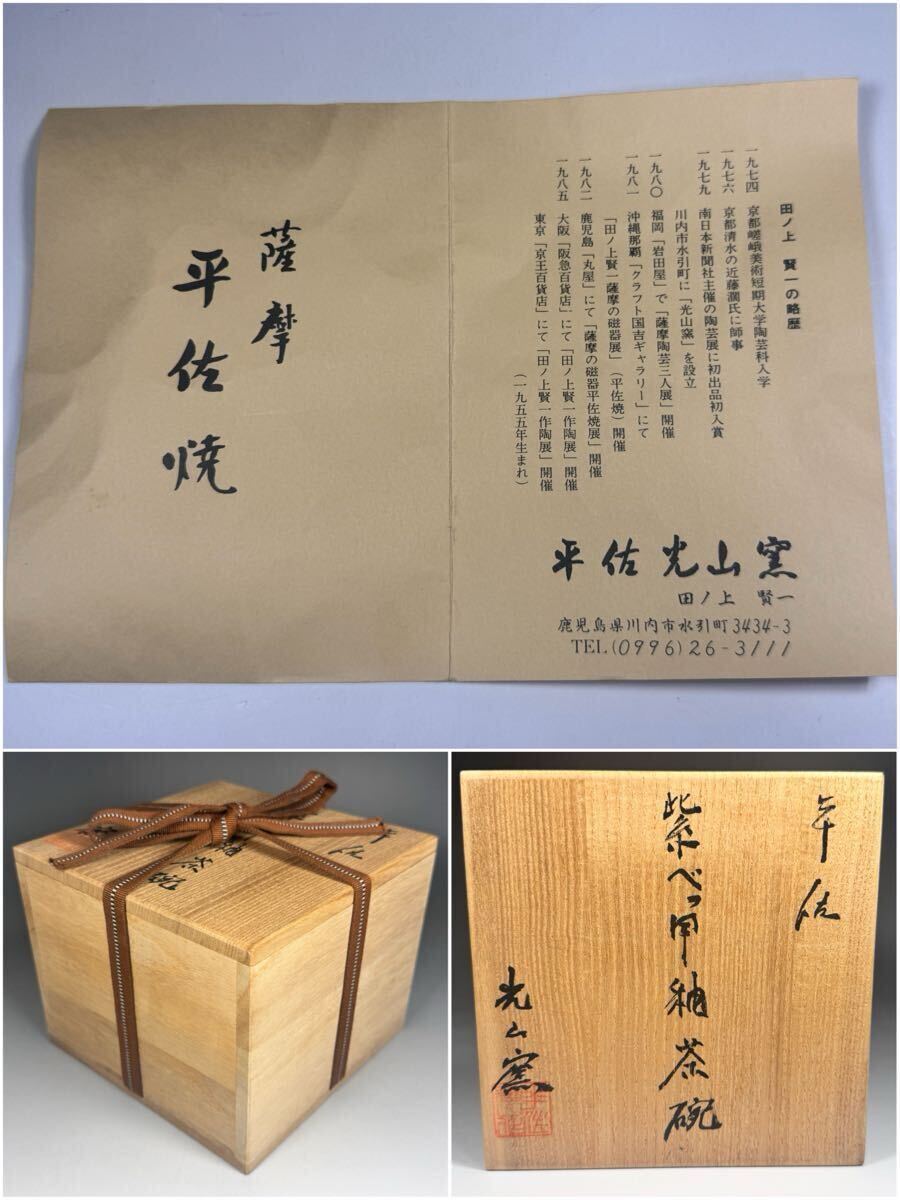 田ノ上　賢一の略歴
一九七四　京都嵯峨美術短期大学陶芸科入学
一九七六　京都清水の近藤濶氏に師事
一九七九　南日本新聞社主催の陶芸展に初出品初入賞
川内市水引町に「光山窯」を設立
一九八〇　福岡「岩田屋」で「薩摩陶芸三人展」開催
一九八一　沖縄那覇「クラフト国吉ギャラリー」にて
「田ノ上賢一薩摩の磁器展」（平佐焼）開催
一九八二　鹿児島「丸屋」にて「薩摩の磁器平佐焼展」開催
一九八五　大阪「阪急百貨店」にて「田ノ上賢一作陶展」開催
東京「京王百貨店」にて「田ノ上賢一作陶展」開催
（一九五五年生まれ）
平佐光山窯
田ノ上　賢一
鹿児島県川内市水引町3434-3
TEL(0996)26-3111
薩摩
平佐焼
平佐
紫べっ甲釉茶碗
光山窯